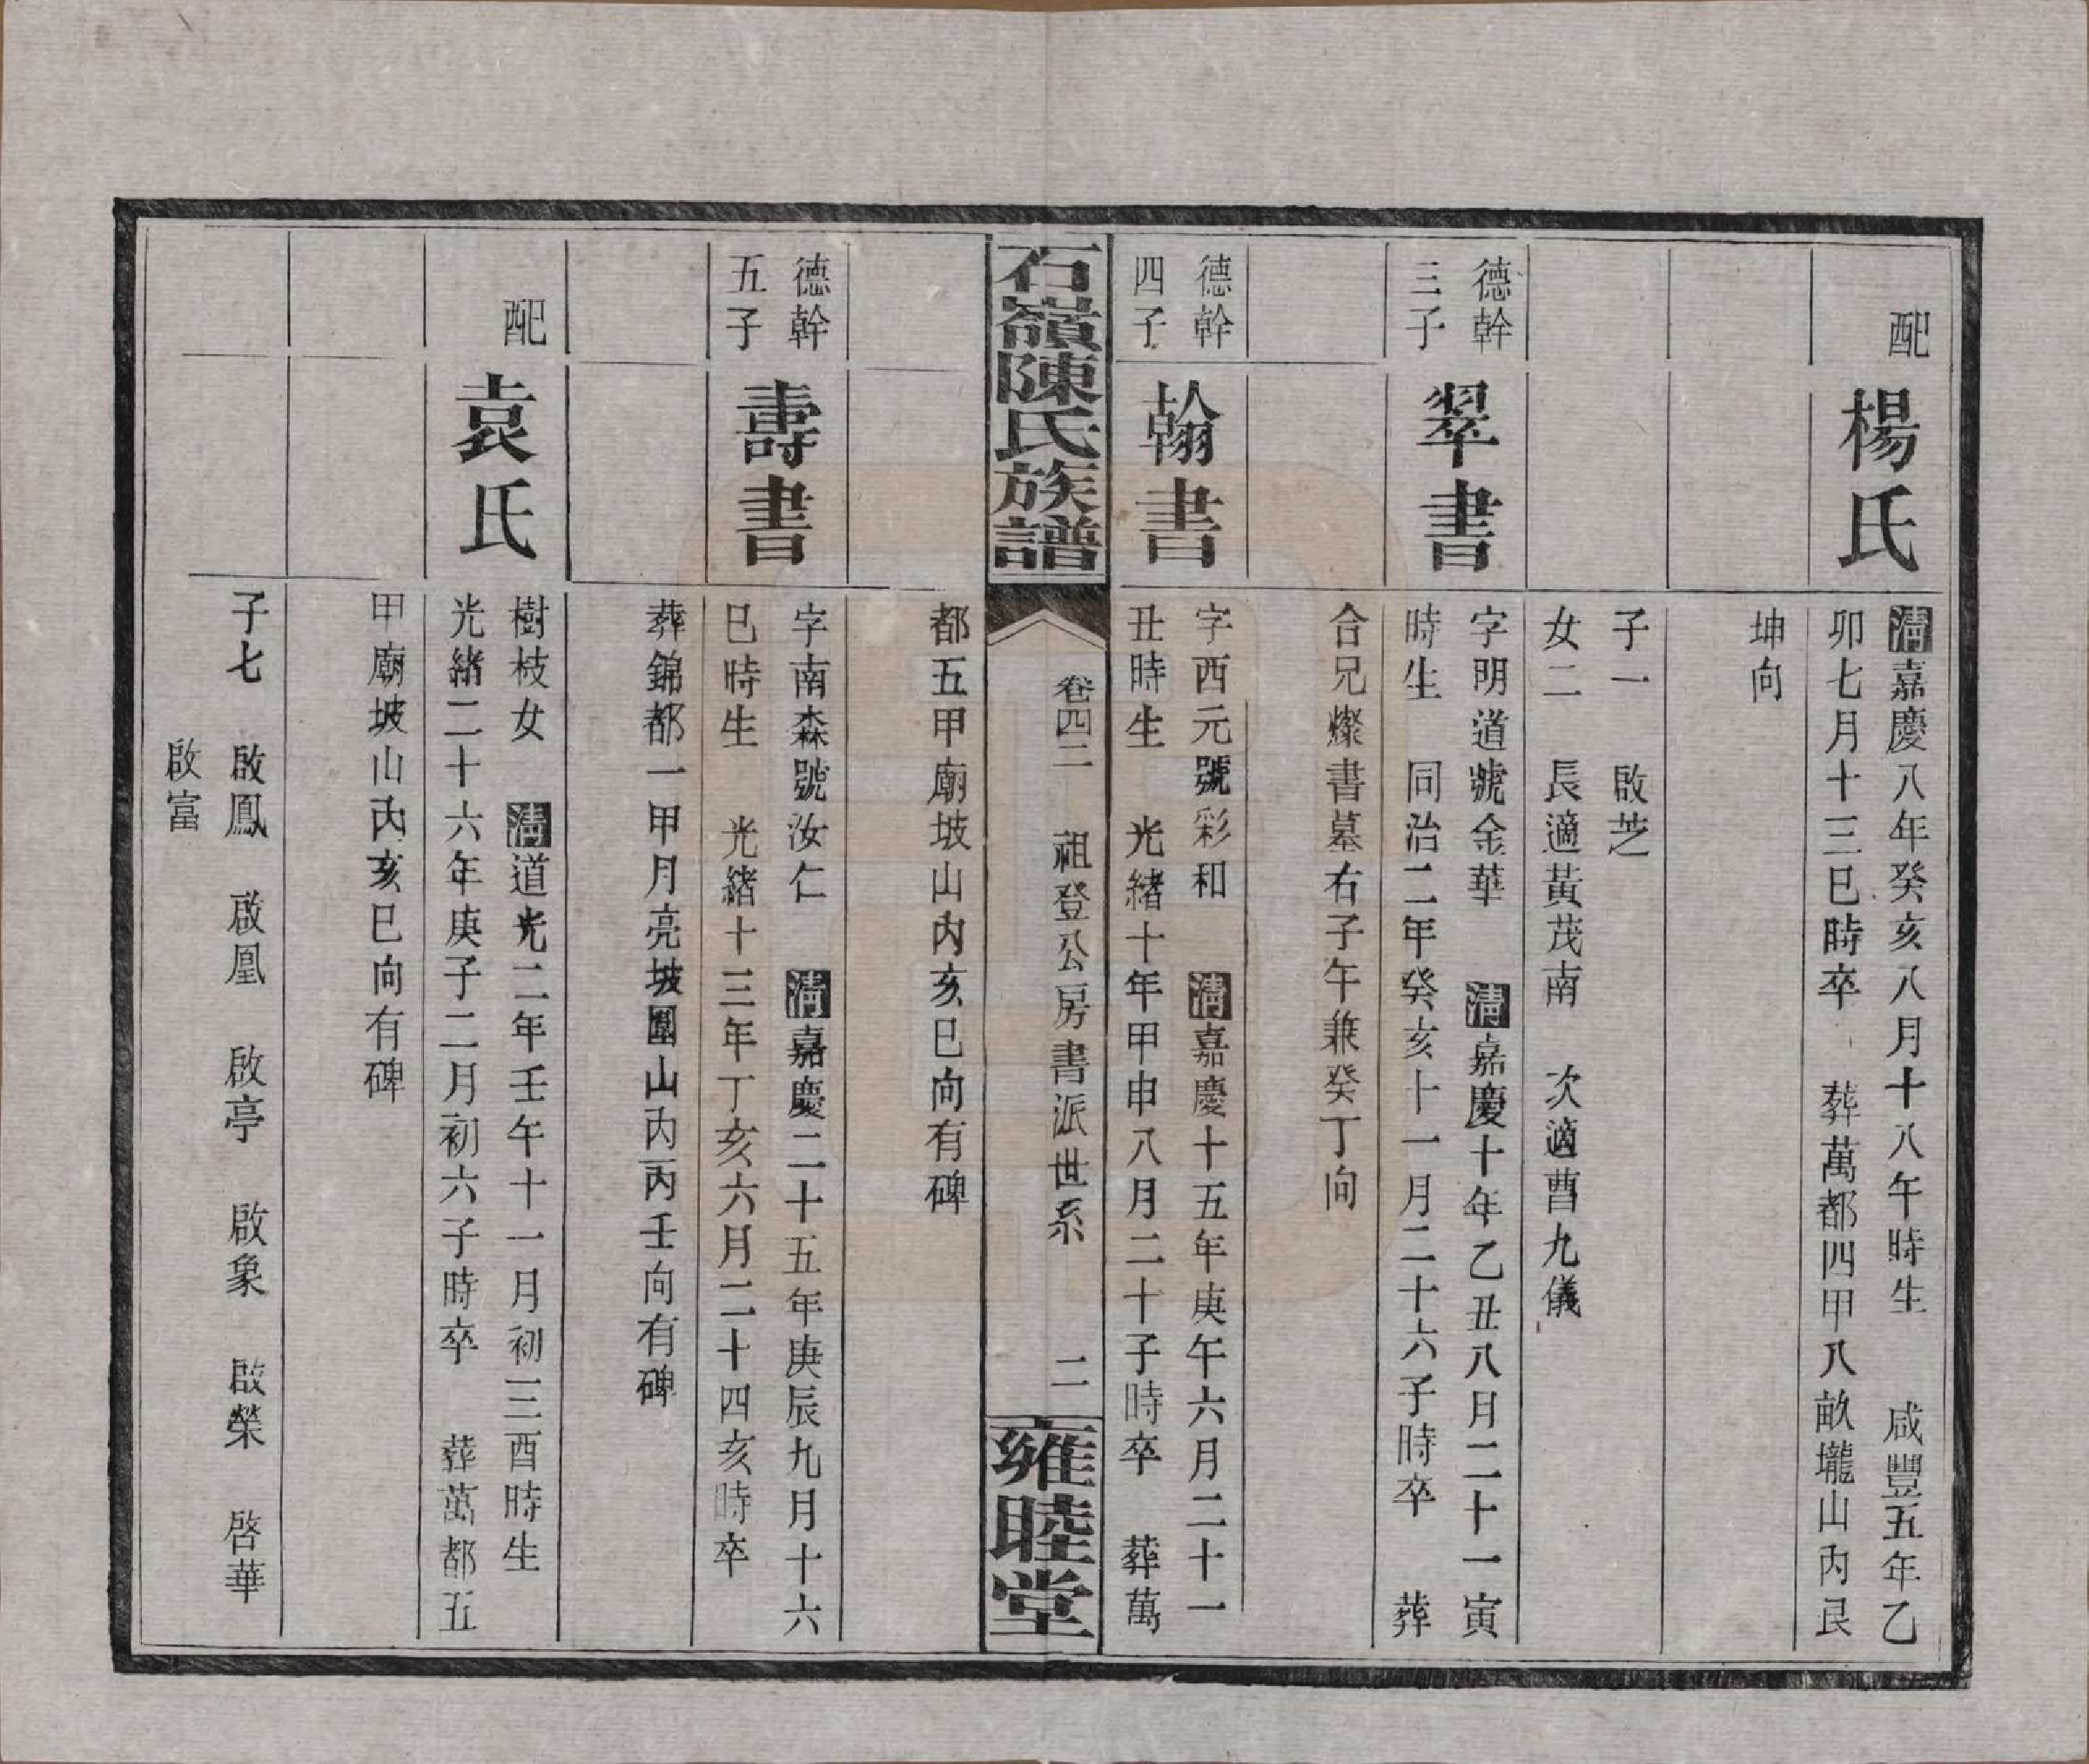 配
楊氏
清嘉慶八年癸亥八月十八午時生　咸豐五年乙
卯七月十三巳時卒　葬萬都四甲八畝壠山內艮
坤向
子一　啟芝
女二　長適黃茂南　次適曹九儀
德幹
三子
翠書
字明道號金華　清嘉慶十年乙丑八月二十一寅
時生　同治二年癸亥十一月二十六子時卒　葬
合兄燦書墓右子午兼癸丁向
德幹
四子
翰書
字西元號彩和　清嘉慶十五年庚午六月二十一
丑時生　光緒十年甲申八月二十子時卒　葬萬
都五甲廟坡山內亥巳向有碑
石嶺陳氏族譜
卷四二　祖登公房書派世系　二
雍睦堂
德幹
五子
壽書
字南森號汝仁　清嘉慶二十五年庚辰九月十六
巳時生　光緒十三年丁亥六月二十四亥時卒
葬錦都一甲月亮坡圍山內丙壬向有碑
配
袁氏
樹枝女　清道光二年壬午十一月初三酉時生
光緒二十六年庚子二月初六子時卒　葬萬都五
甲廟坡山內亥巳向有碑
子七　啟鳳　啟凰　啟亭　啟象　啟榮　啓華
啟富